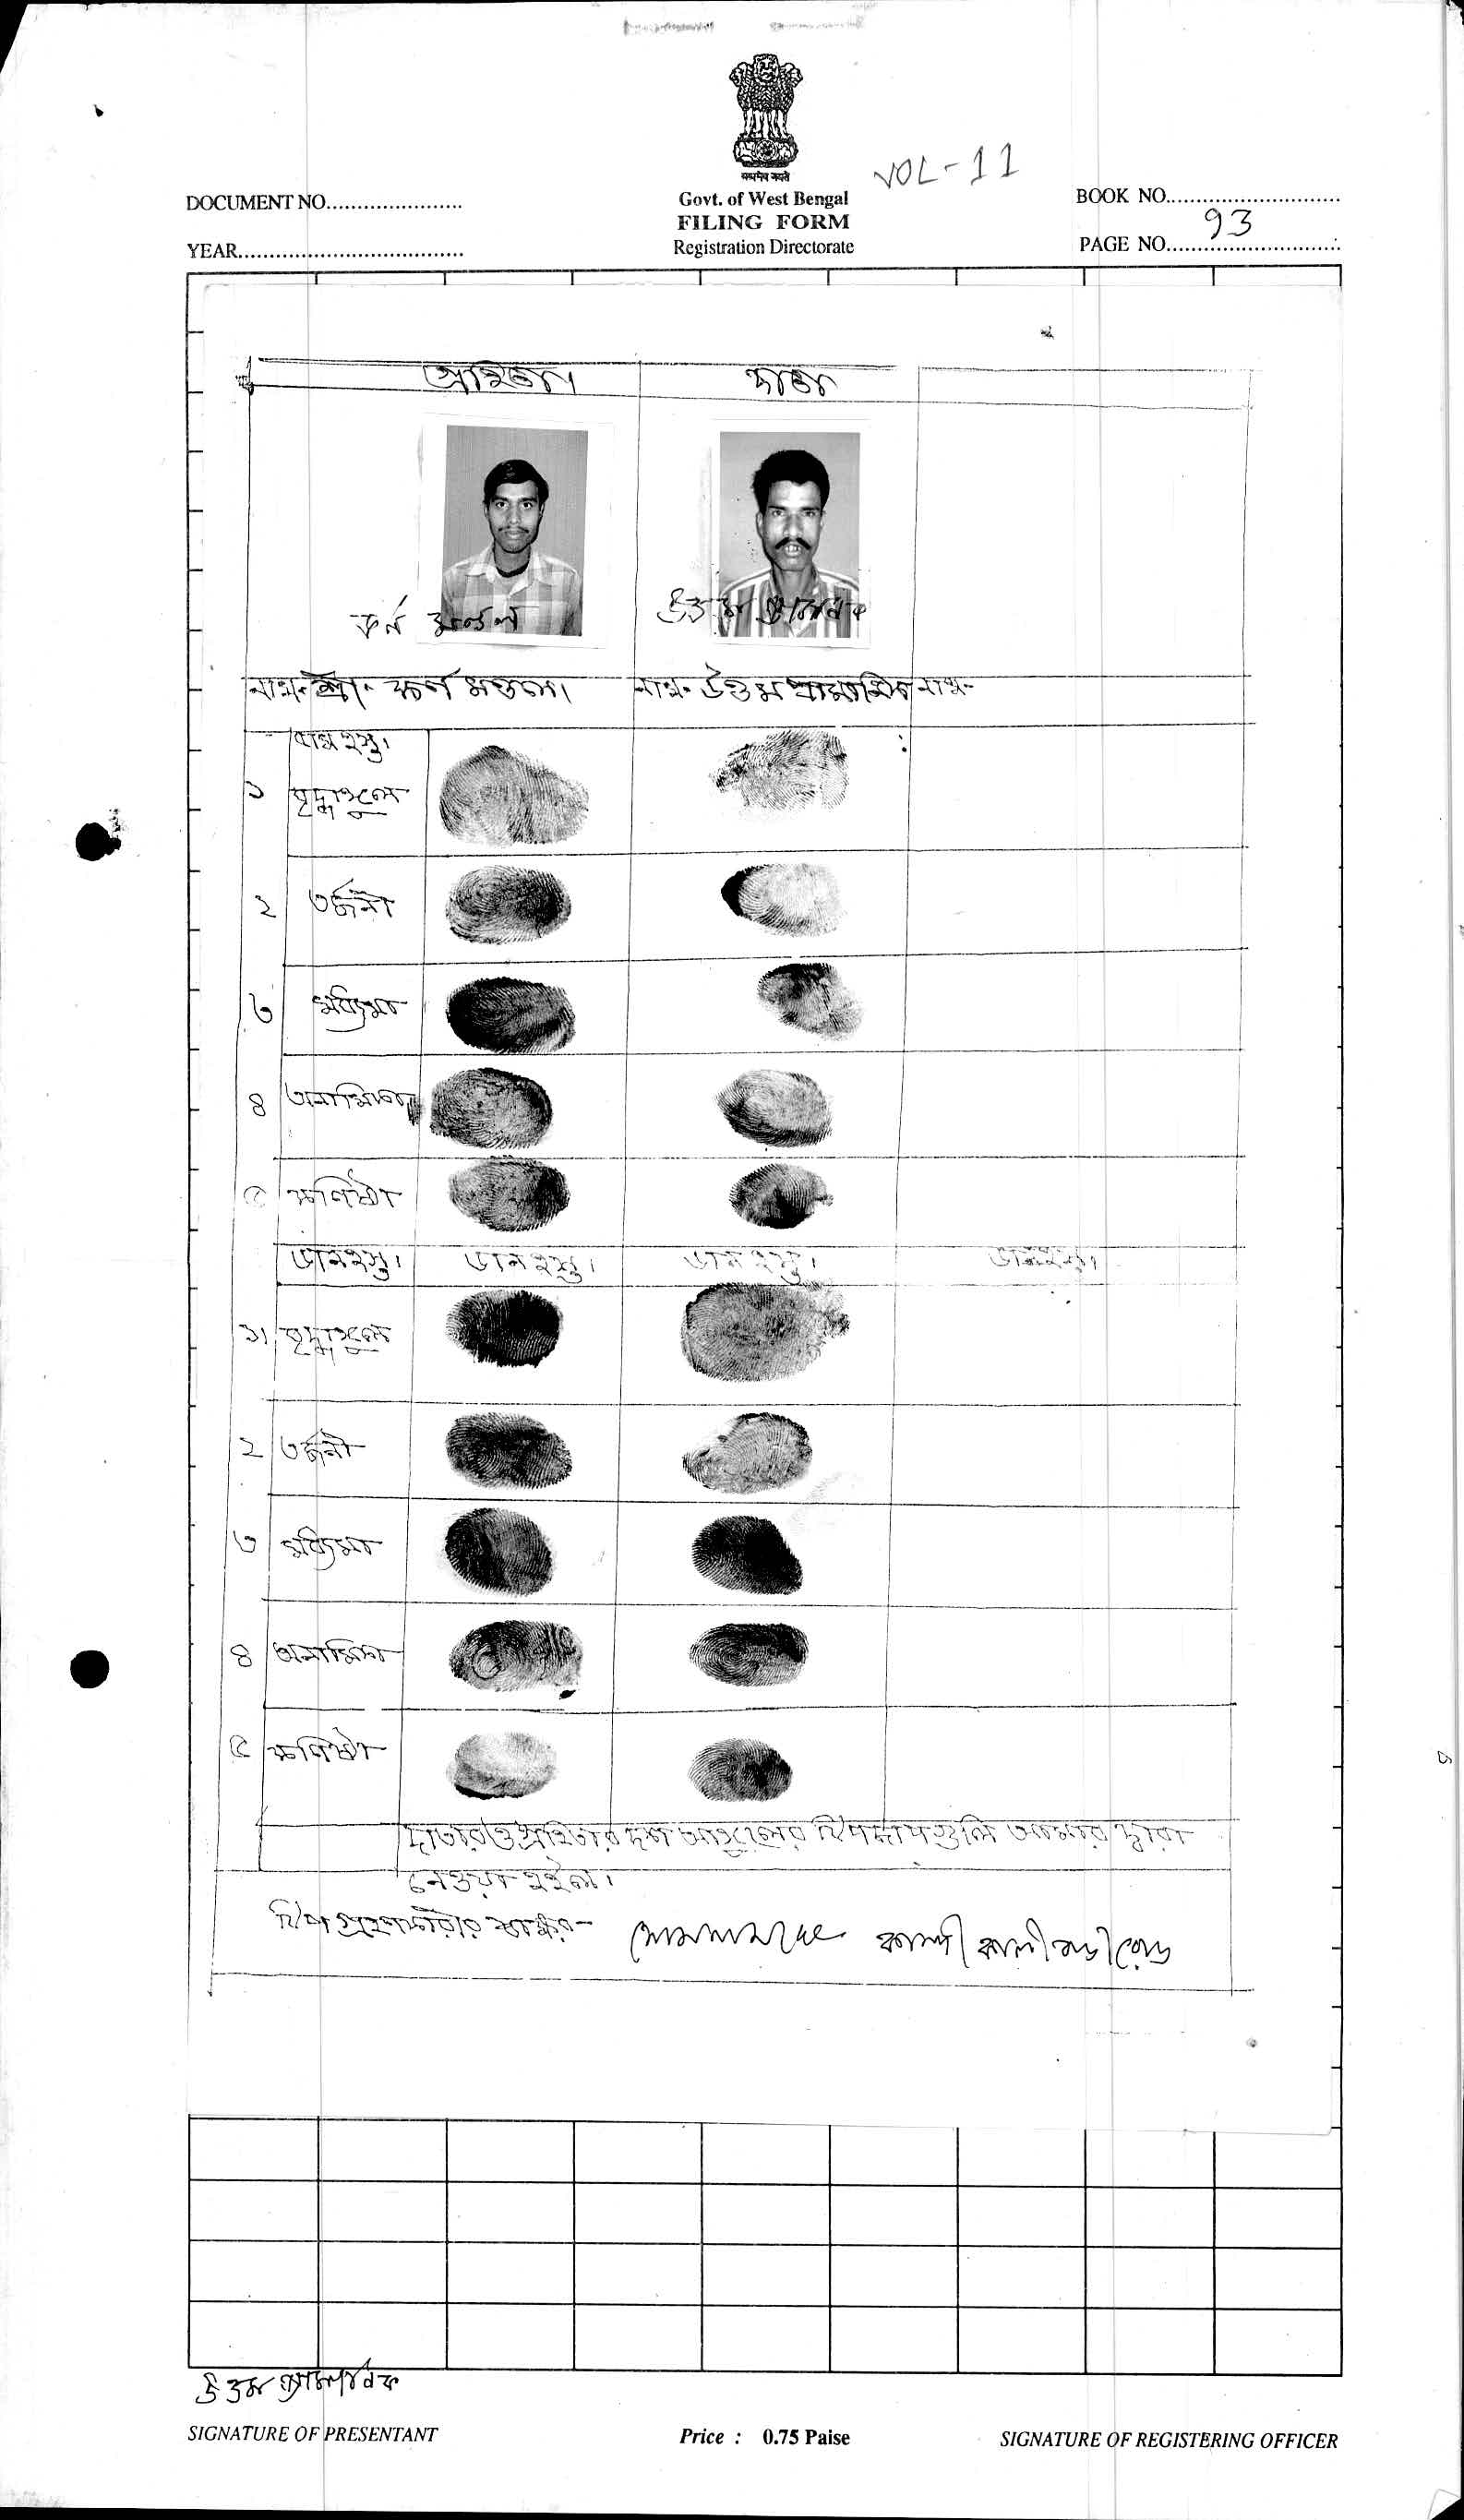 सत्यमेव जयते
VOL-11
DOCUMENT NO.
Govt. of West Bengal
BOOK NO.
FILING FORM
YEAR
Registration Directorate
PAGE NO. 93
গ্রহিতা। দাতা
কর্ন মন্ডল উত্তম প্রামানিক
নাম- শ্রী- কর্ণ মণ্ডল। নাম- উত্তম প্রামানিক নাম-
বাম হস্ত।
১ বৃদ্ধাঙ্গুল
২ তর্জনী
৩ মধ্যমা
৪ অনামিকা
৫ কনিষ্ঠা
ডান হস্ত। ডান হস্ত। ডান হস্ত। ডান হস্ত।
১। বৃদ্ধাঙ্গুল
২ তর্জনী
৩ মধ্যমা
৪ অনামিকা
৫ কনিষ্ঠা
দাতার ও গ্রহিতার দশ আঙ্গুলের টিপছাপগুলি আমার দ্বারা
নেওয়া হইল।
টিপ গ্রহণকারীর স্বাক্ষর-
উত্তম প্রামানিক
SIGNATURE OF PRESENTANT
Price : 0.75 Paise
SIGNATURE OF REGISTERING OFFICER